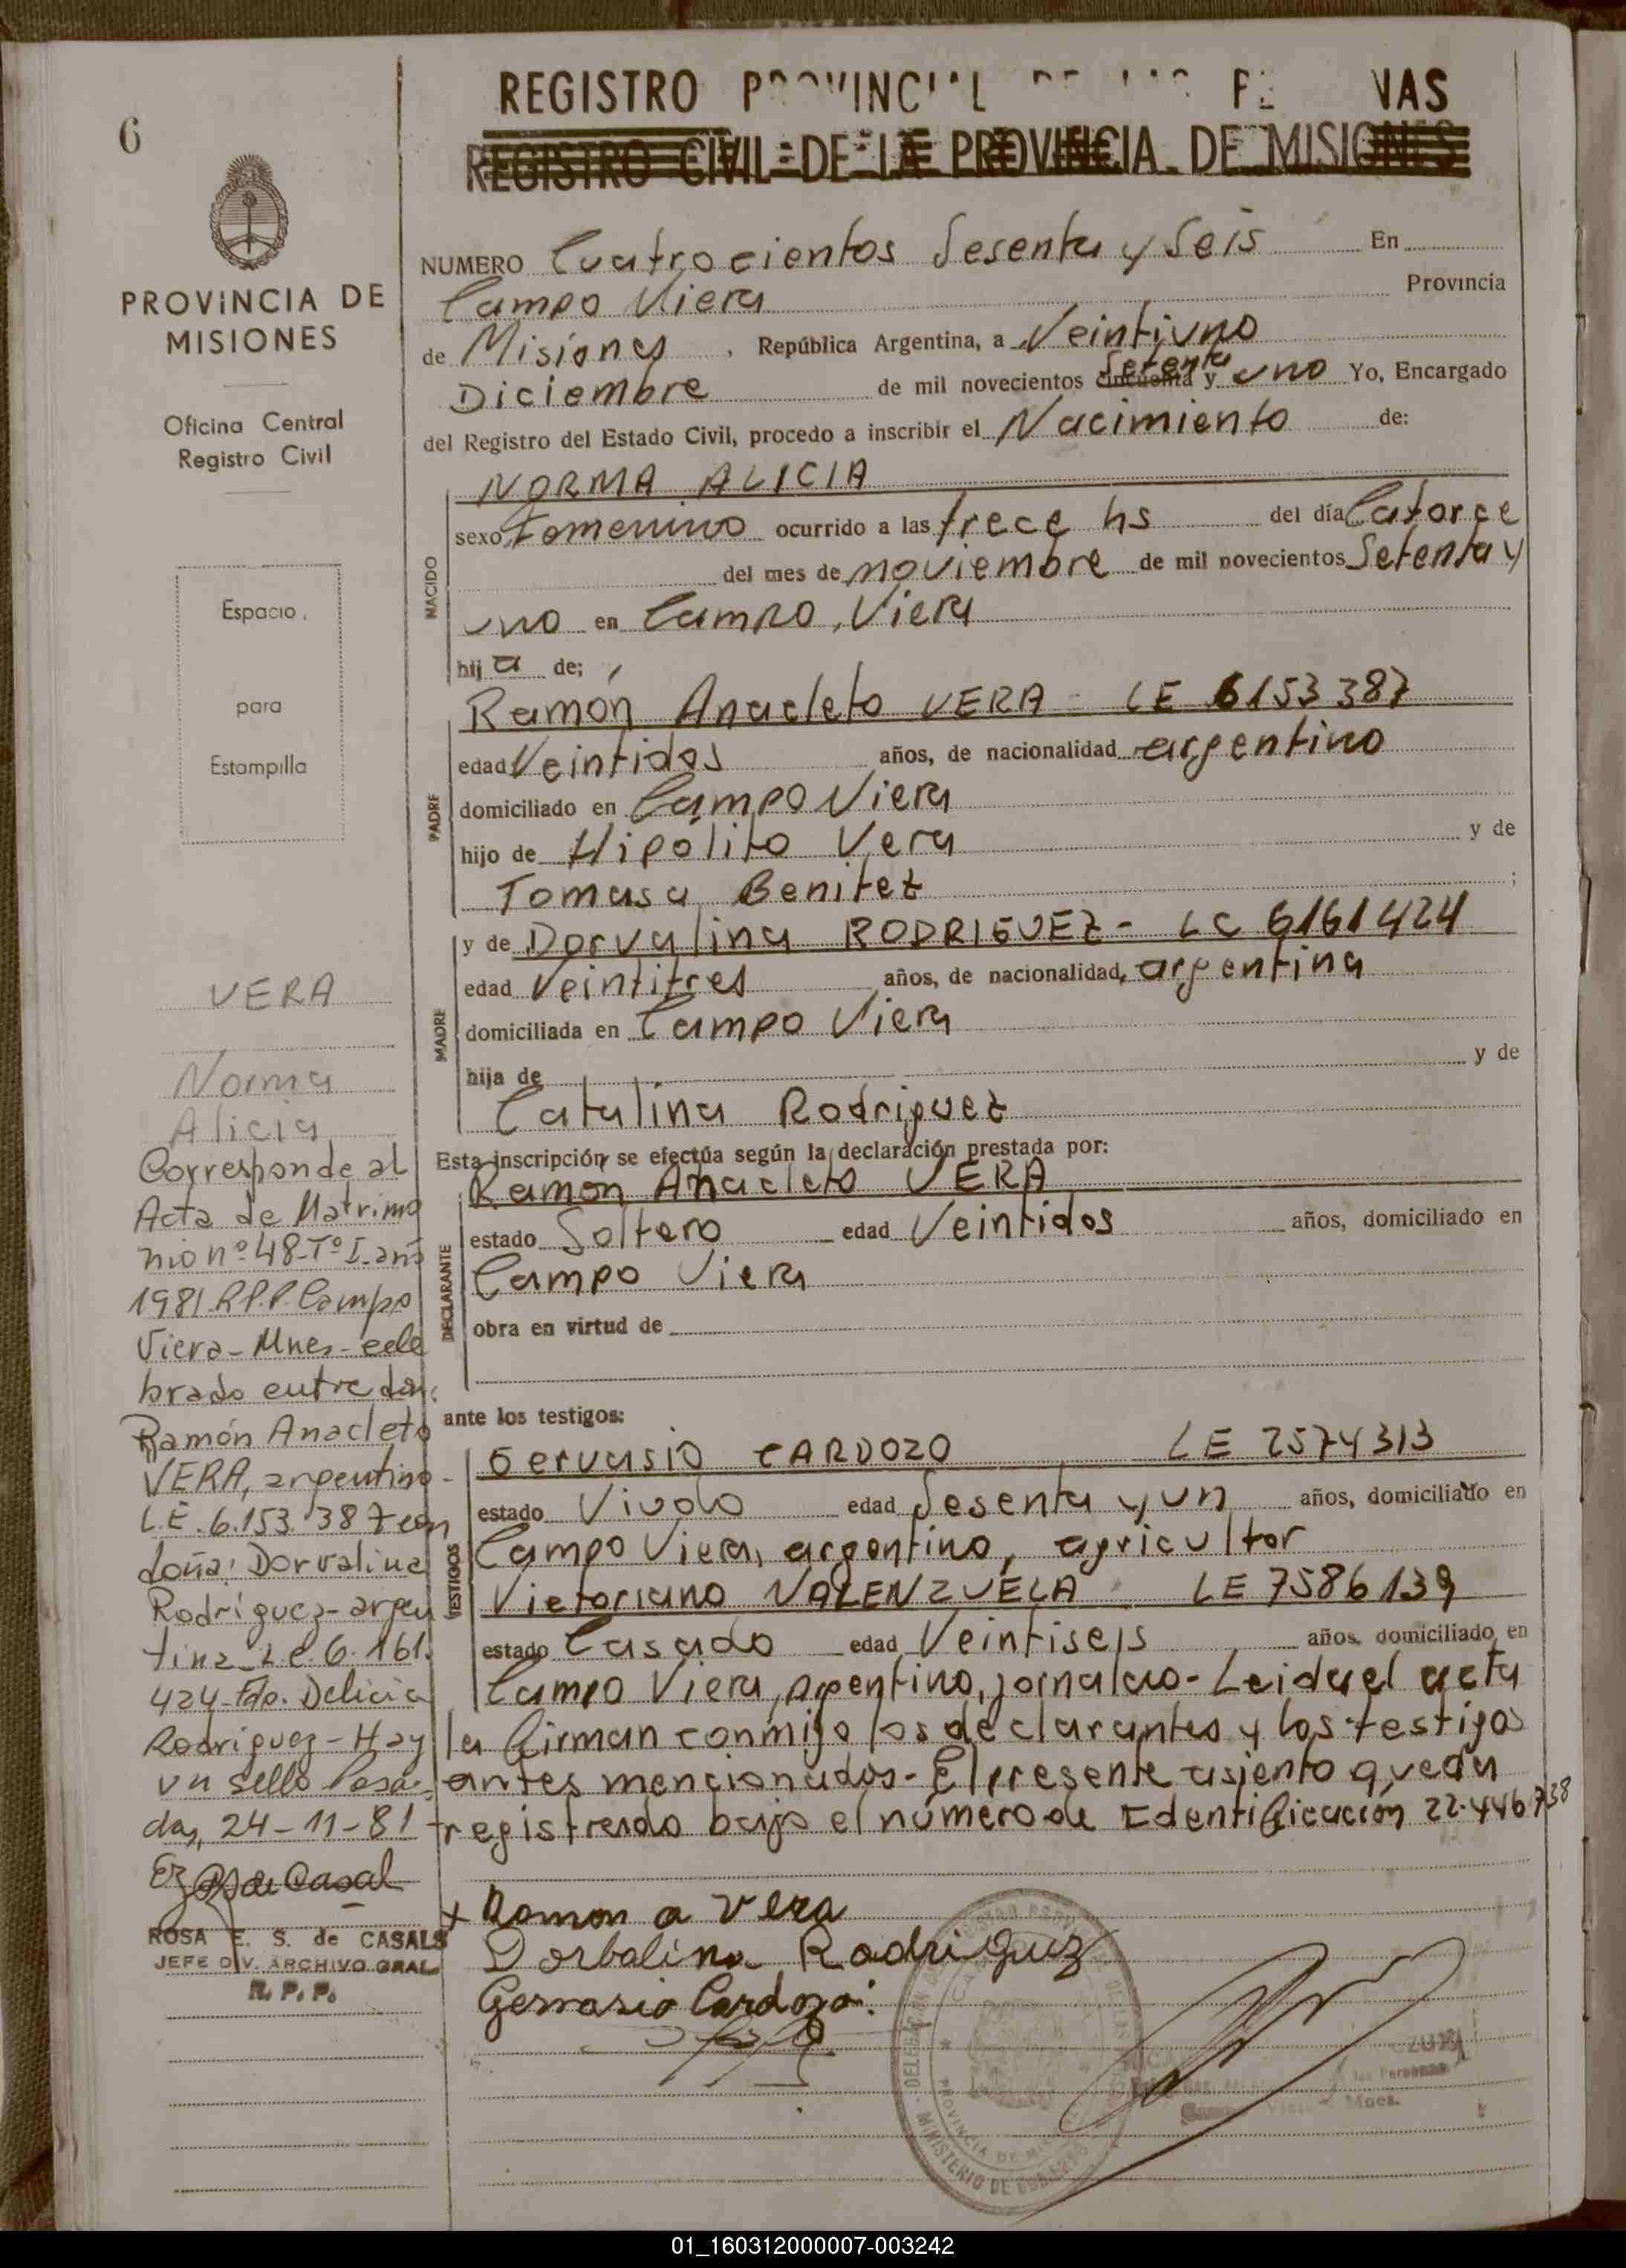 6
PROVINCIA DE
MISIONES
Oficina Central
Registro Civil
Espacio
para
Estampilla
VERA
Norma
Alicia
Corresponde al
Acta de Matrimo
nio nº 48-Tº I-año
1981 R.P.P. Campo
Viera-Mnes-cele
brado entre don:
Ramón Anacleto
VERA, argentino-
L.E. 6.153.387 con
doña: Dorvalina
Rodríguez-argen
tina-L.C. 6.161.
424-Fdo. Delicia
Rodriguez-Hay
un sello Posa-
das, 24-11-81
ROSA E. S. de CASALS
JEFE DIV. ARCHIVO GRAL
R. P. P.
REGISTRO PROVINCIAL
REGISTRO CIVIL DE LA PROVINCIA DE MISIONES
NUMERO Cuatrocientos Sesenta y Seis En
Campo Viera Provincia
de Misiones, República Argentina, a Veintiuno
Diciembre de mil novecientos cincuenta Setenta y uno Yo, Encargado
del Registro del Estado Civil, procedo a inscribir el Nacimiento de:
NACIDO
NORMA ALICIA
sexo femenino ocurrido a las trece hs del día Catorce
del mes de noviembre de mil novecientos Setenta y
uno en Campo Viera
hija de;
PADRE
Ramón Anacleto VERA - LE 6153387
edad Veintidos años, de nacionalidad argentino
domiciliado en Campo Viera
hijo de Hipólito Vera y de
Tomasa Benitez ;
MADRE
y de Dorvalina RODRIGUEZ - LC 6161424
edad Veintitres años, de nacionalidad argentina
domiciliada en Campo Viera
hija de y de
Catalina Rodriguez
Esta inscripción se efectúa según la declaración prestada por:
DECLARANTE
Ramón Anacleto VERA
estado Soltero edad Veintidos años, domiciliado en
Campo Viera
obra en virtud de
ante los testigos:
TESTIGOS
Gervasio CARDOZO LE 2574313
estado Viudo edad Sesenta y un años, domiciliado en
Campo Viera, argentino, agricultor
Victoriano VALENZUELA LE 7586139
estado Casado edad Veintiseis años, domiciliado en
Campo Viera, argentino, jornalero - Leida el acta
la firman conmigo los declarantes y los testigos
antes mencionados - El presente asiento queda
registrado bajo el número de Identificación 22.446.738
x Ramon a vera
Dorbalina Rodriguez
Gervasio Cardozo
01_160312000007-003242